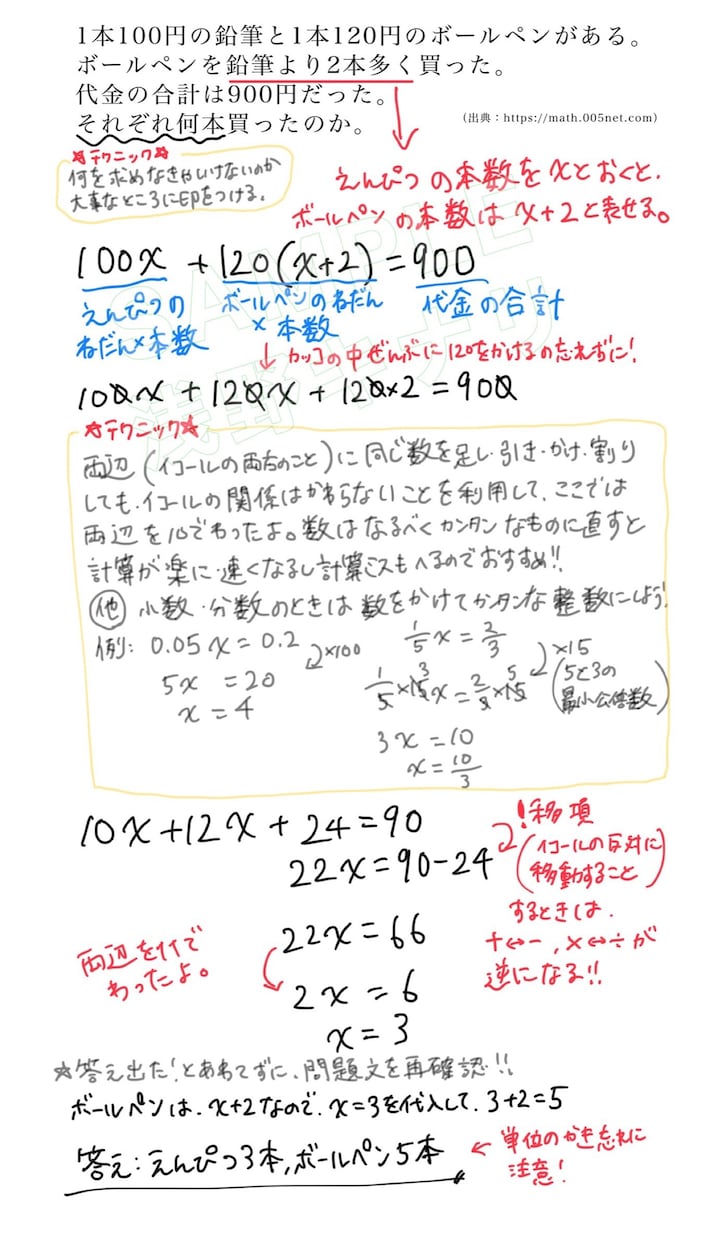 1本100円の鉛筆と1本120円のボールペンがある。
ボールペンを鉛筆より2本多く買った。
代金の合計は900円だった。
それぞれ何本買ったのか。
（出典：https://math.005net.com）
☆テクニック☆
何を求めなきゃいけないのか
大事なところに印をつける。
えんぴつの本数をxとおくと、
ボールペンの本数はx+2と表せる。
100x + 120(x+2) = 900
えんぴつの
ねだん×本数
ボールペンのねだん
×本数
代金の合計
↓カッコの中ぜんぶに120をかけるの忘れずに!
100x + 120x + 120×2 = 900
☆テクニック☆
両辺(イコールの両右のこと)に同じ数を足し・引き・かけ・割り
しても、イコールの関係はかわらないことを利用して、ここでは
両辺を10でわったよ。数はなるべくカンタンなものに直すと
計算が楽に・速くなるし計算ミスもへるのでおすすめ!!
他 小数・分数のときは数をかけてカンタンな整数にしよう!
例: 0.05x = 0.2
×100
5x = 20
x = 4
1/5 x = 2/3
×15
(5と3の
最小公倍数)
1/5 × 15 3 x = 2/3 × 15 5
3x = 10
x = 10/3
10x + 12x + 24 = 90
22x = 90 - 24
!移項
(イコールの反対に
移動すること)
するときは、
+↔-, ×↔÷が
逆になる!!
22x = 66
両辺を11で
わったよ。
2x = 6
x = 3
☆答え出た!とあわてずに、問題文を再確認!!
ボールペンは、x+2なので、x=3を代入して、3+2=5
答え:えんぴつ3本,ボールペン5本
←単位のかき忘れに
注意!
SAMPLE